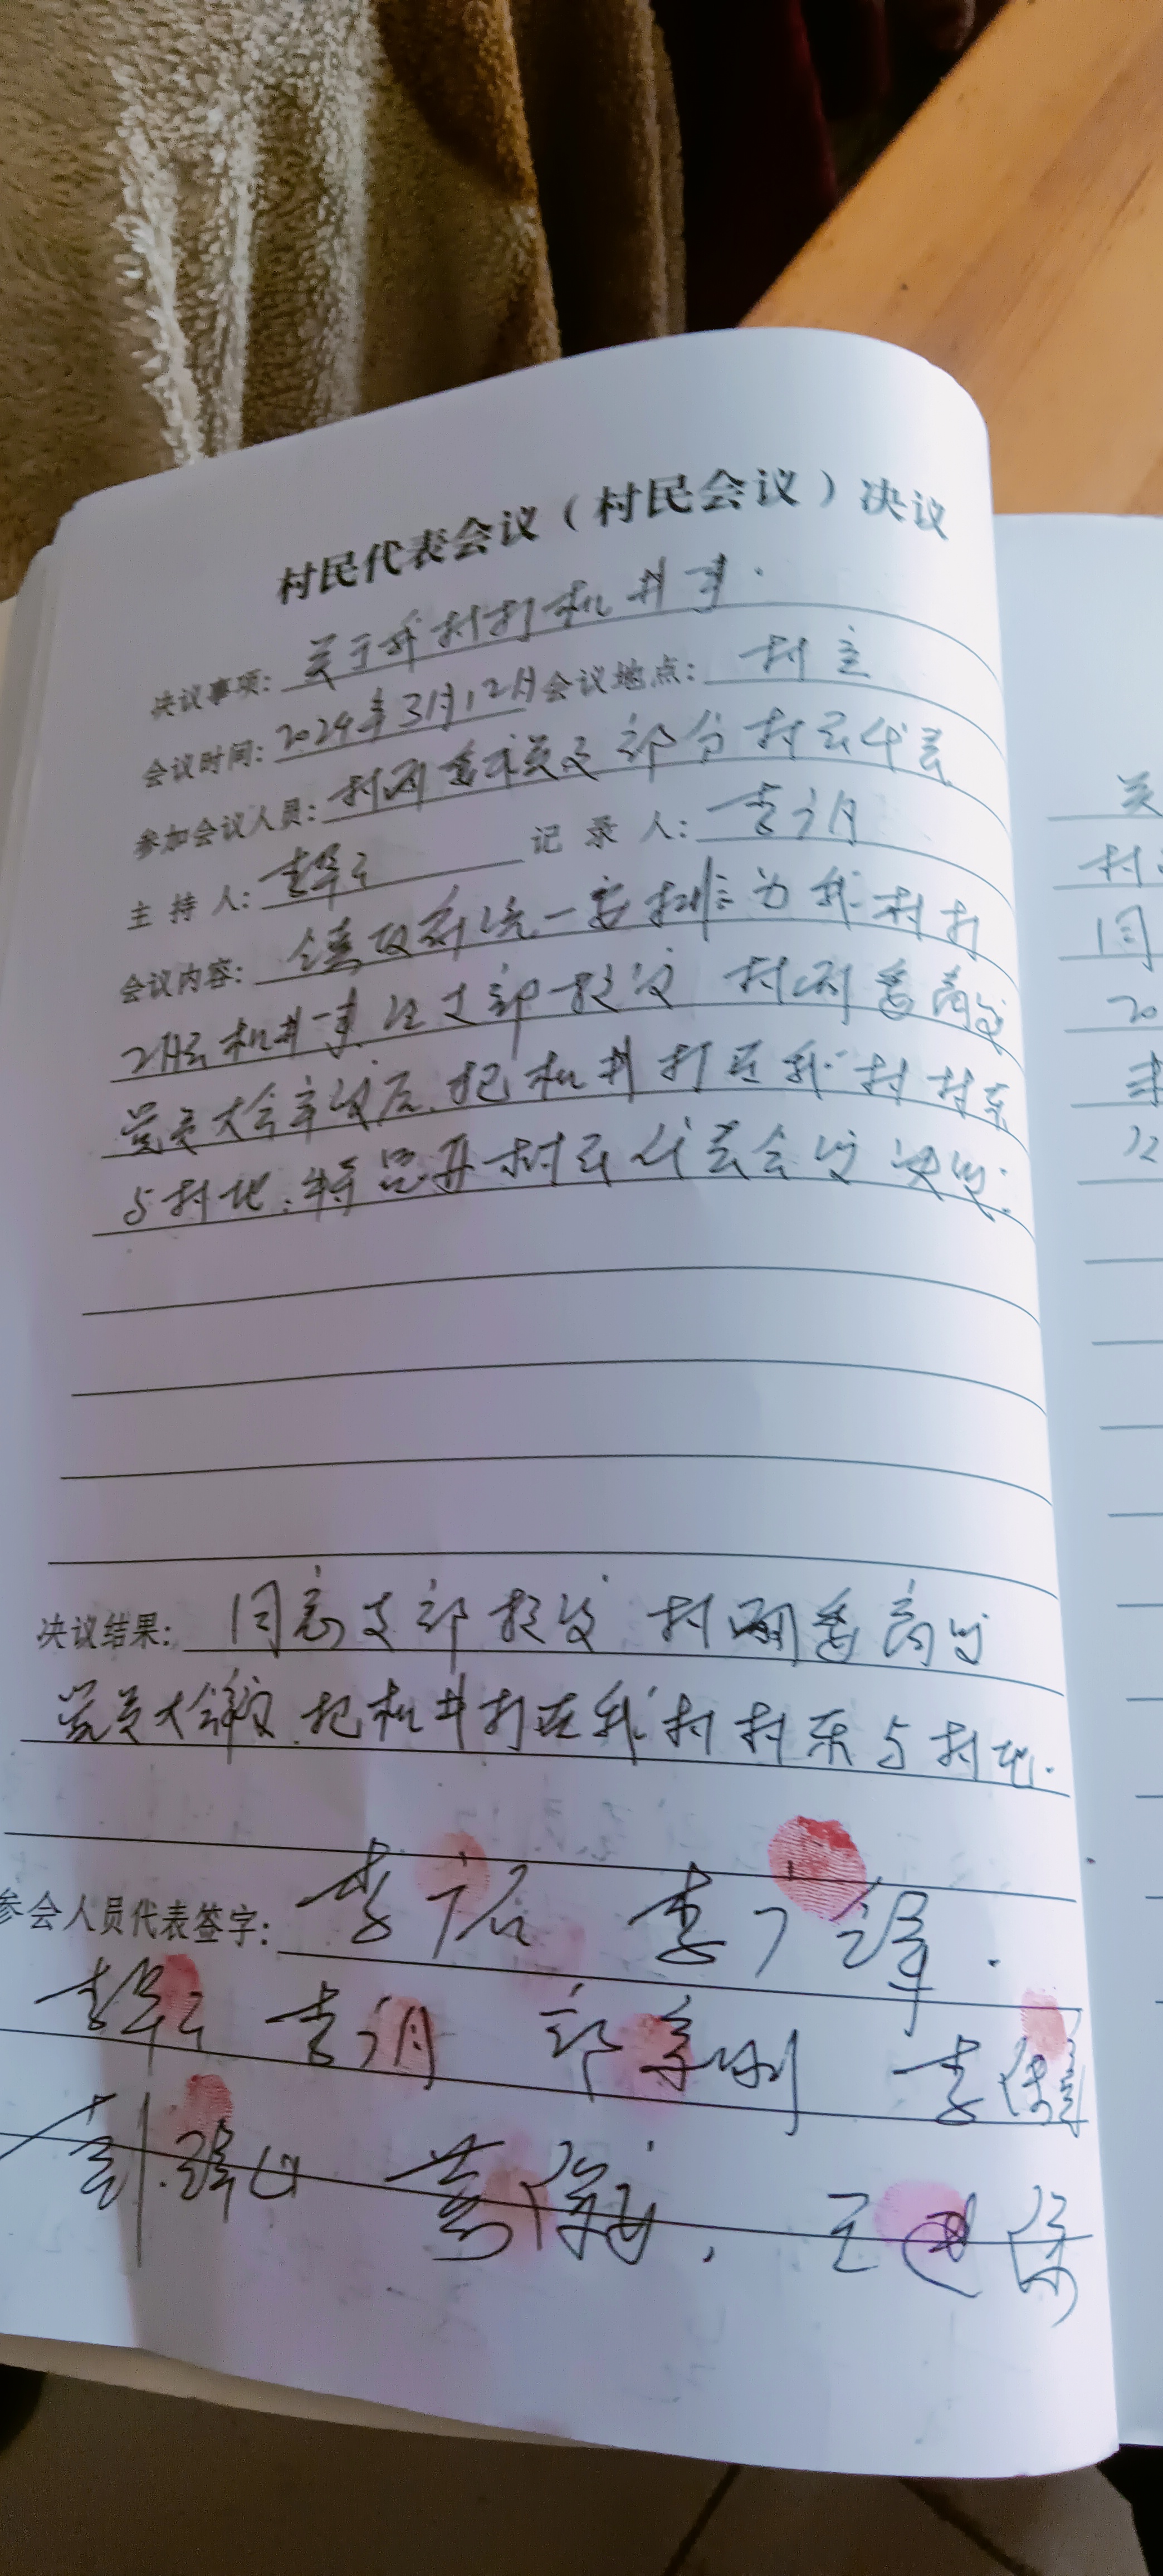 村民代表会议（村民会议）决议
决议事项: 关于我村打机井事.
会议时间: 2024年3月12日 会议地点: 村主
参加会议人员: 村两委成员及部分村民代表
主 持 人: 李 记 录 人: 李
会议内容: 镇政府统一安排为我村打
机井事,经支部提议 村两委商议
党员大会审议后,把机井打在我村村东
与村地.特召开村民代表会议决议:
决议结果: 同意支部提议 村两委商议
党员大会审议.把机井打在我村村东与村地.
参会人员代表签字: 李广 李广
李 李 郭 李
刘 黄 王
关
村
同
20